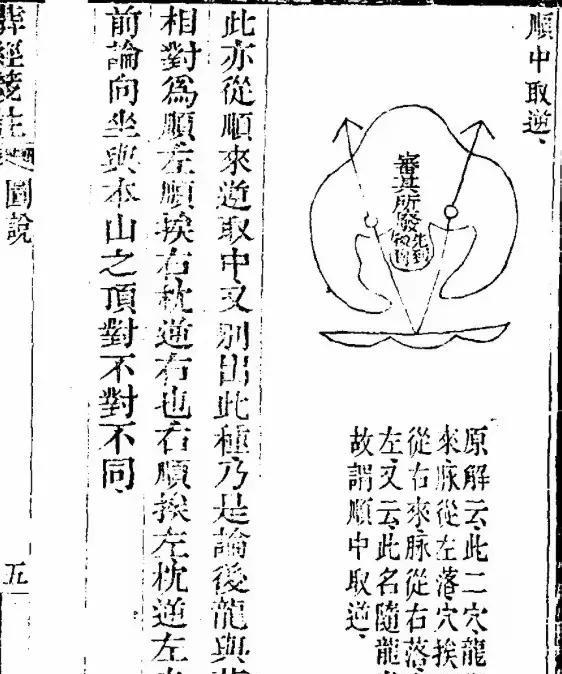 順中取逆、
審其所發
先到
原解云、此二穴、龍
來脉從左落穴挨
從右來脉從右落
左、又云、此名隨龍
故謂順中取逆、
此亦從順來逆取中又別出此種乃是論後龍與
相對爲順左順挨右枕逆右也右順挨左枕逆左
前論向坐與本山之頂對不對不同、
葬經箋註
圖說
五